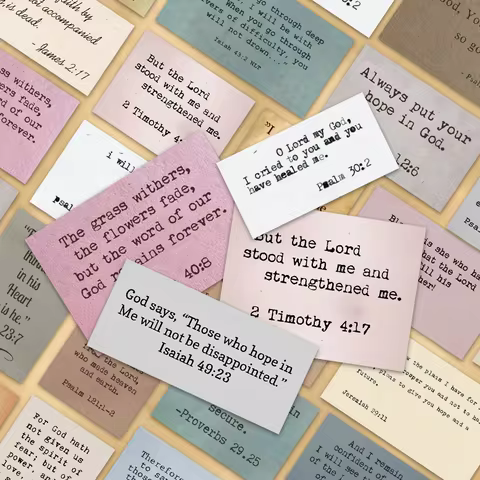 faith by
not accompanied
is dead.
- James 2:17
go through deep
will be with
When you go through
rivers of difficulty, you
will not drown...
Isaiah 43:2 NLT
30:2
God, Yo
so go
withers,
fade,
of our
forever.
But the Lord
stood with me and
strengthened me.
2 Timothy 4:
Always put your
hope in God.
12:6
i will
psal
O lord my God,
I cried to you and you
have healed me.
Psalm 30:2
The grass withers,
the flowers fade,
but the word of our
God remains forever.
40:8
But the Lord
stood with me and
strengthened me.
2 Timothy 4:17
is she who ha
that the Lord
his
her!
in his
Heart
is he."
23:7
God says, "Those who hope in
Me will not be disappointed."
Isaiah 49:23
who made heaven
and earth.
Psalm 121:1-2
the plans I have for
prosper you and not to
future.
to give you hope and a
Jeremiah 29:11
secure.
-Proverbs 29.25
For God hath
not given us
the spirit of
fear; but of
power, and
love,
Therefore
to
those
And I remain
confident of
I will see
of the